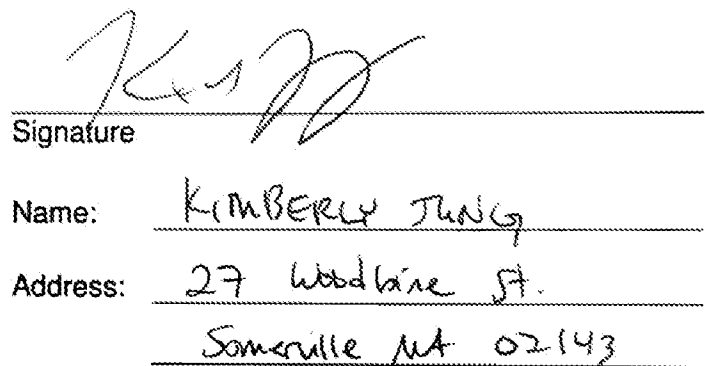 Signature
Name: KIMBERLY JUNG
Address: 27 Woodbine St.
Somerville MA 02143